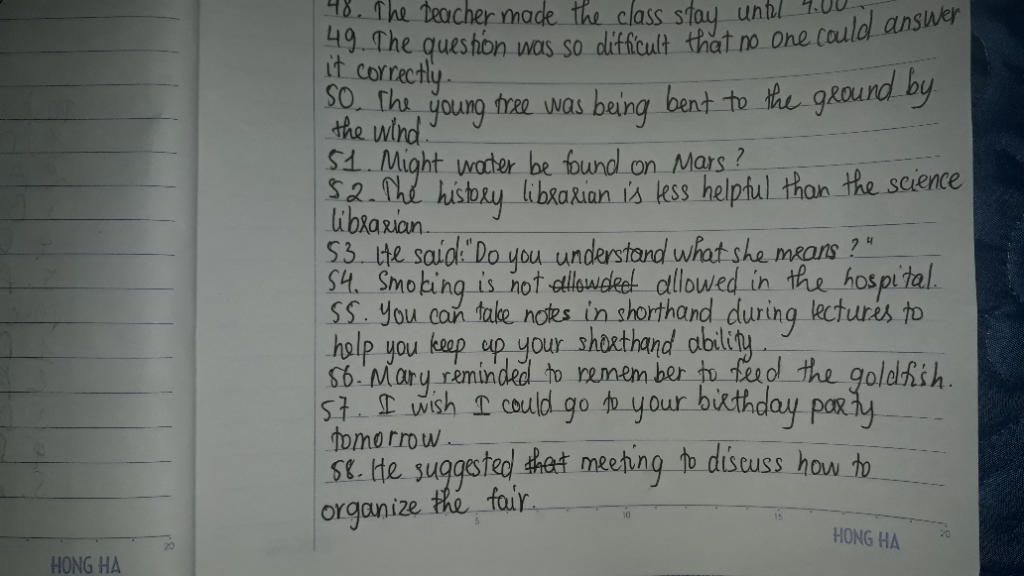 48. The teacher made the class stay until 4.00
49. The question was so difficult that no one could answer
it correctly.
50. The young tree was being bent to the ground by
the wind.
51. Might water be found on Mars?
52. The history librarian is less helpful than the science
librarian.
53. He said:"Do you understand what she means?"
54. Smoking is not allowded allowed in the hospital.
55. You can take notes in shorthand during lectures to
help you keep up your shorthand ability.
56. Mary reminded to remember to feed the goldfish.
57. I wish I could go to your birthday party
tomorrow.
58. He suggested that meeting to discuss how to
organize the fair.
5 10 15 20
HONG HA
20
HONG HA